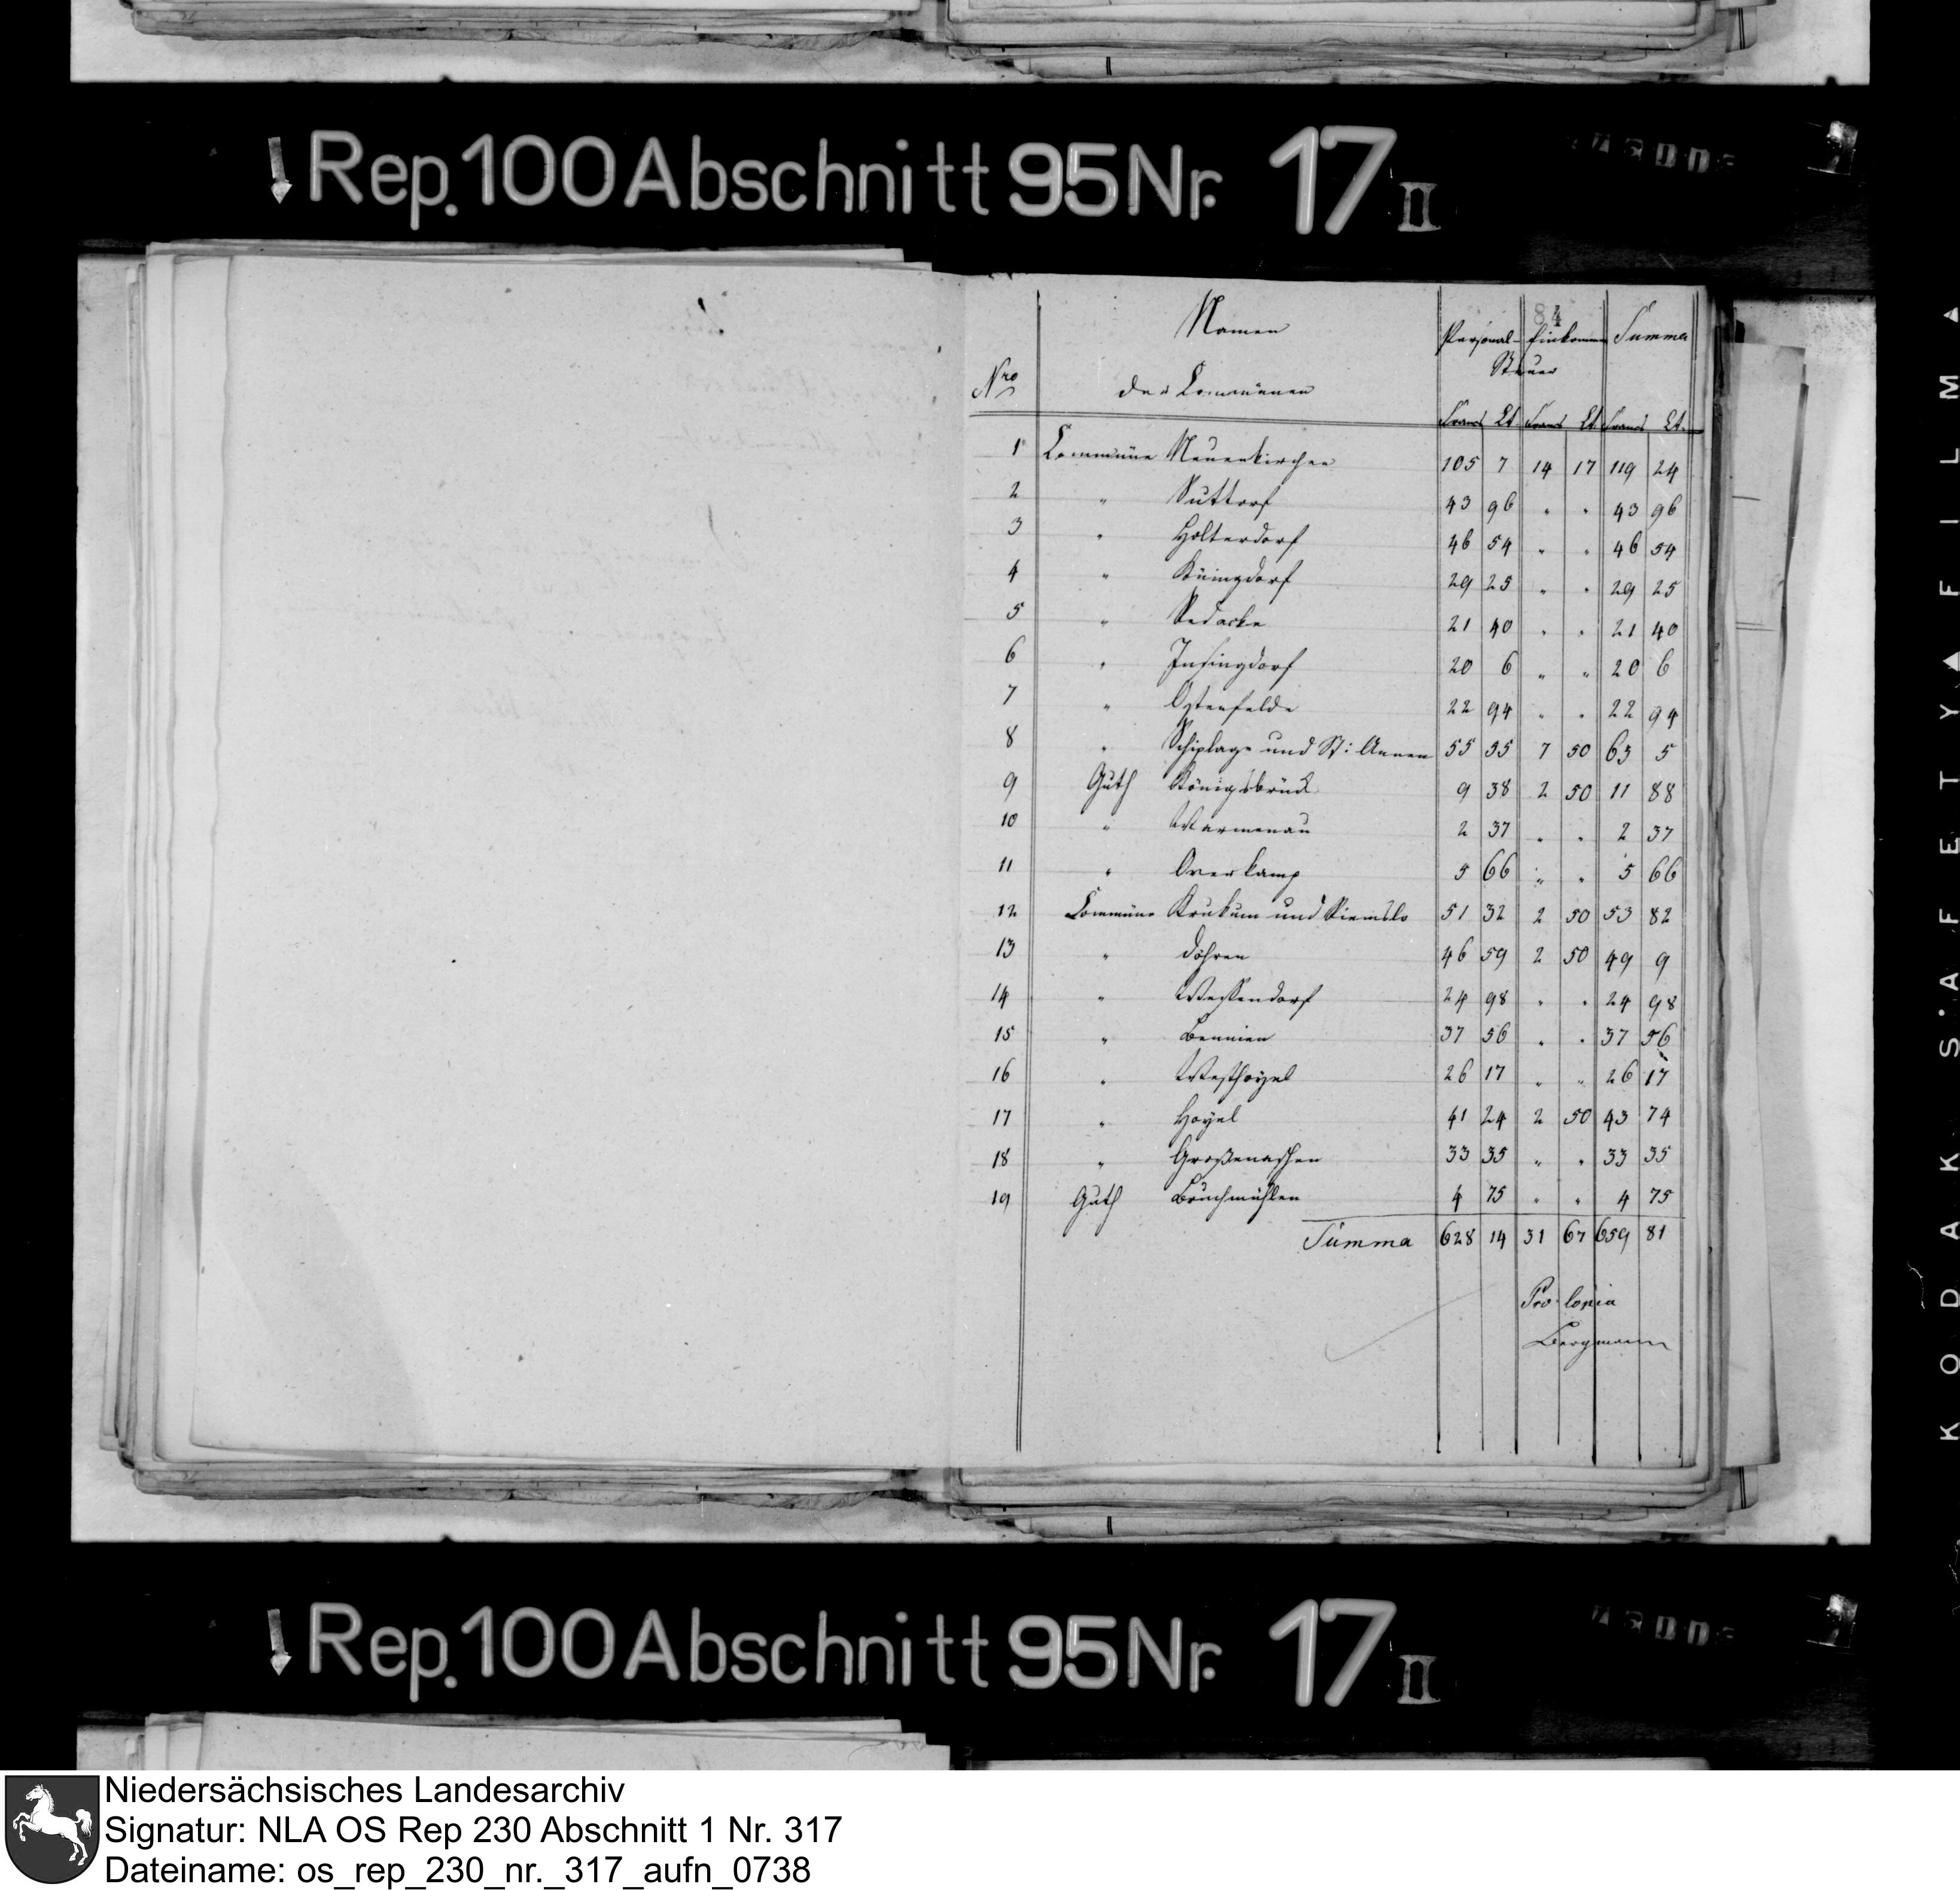 Rep. 100 Abschnitt 95 Nr. 17 II
84
Nro Namen der Communen Personal- Einkommen Steuer Summa
Francs Ct Francs Ct Francs Ct.
1 Commüne Neuenkirchen 105 7 14 17 119 24
2 " Suttorf 43 96 " " 43 96
3 " Holterdorf 46 54 " " 46 54
4 " Küingdorf 29 25 " " 29 25
5 " Redecke 21 40 " " 21 40
6 " Insingdorf 20 6 " " 20 6
7 " Ostenfelde 22 94 " " 22 94
8 " Schiplage und St: Annen 55 55 7 50 63 5
9 Guth Königsbrück 9 38 2 50 11 88
10 " Warmenau 2 37 " " 2 37
11 " Overkamp 5 66 " " 5 66
12 Commüne Krukum und Riemslo 51 32 2 50 53 82
13 " Döhren 46 59 2 50 49 9
14 " Wessendorf 24 98 " " 24 98
15 " Bennien 37 56 " " 37 56
16 " Westhoyel 26 17 " " 26 17
17 " Hoyel 41 24 2 50 43 74
18 " Großenaschen 33 35 " " 33 35
19 Guth Bruchmühlen 4 75 " " 4 75
Summa 628 14 31 67 659 81
Pro Copia
Bergmann
Rep. 100 Abschnitt 95 Nr. 17 II
KODAK SAFETY FILM
Niedersächsisches Landesarchiv
Signatur: NLA OS Rep 230 Abschnitt 1 Nr. 317
Dateiname: os_rep_230_nr._317_aufn_0738